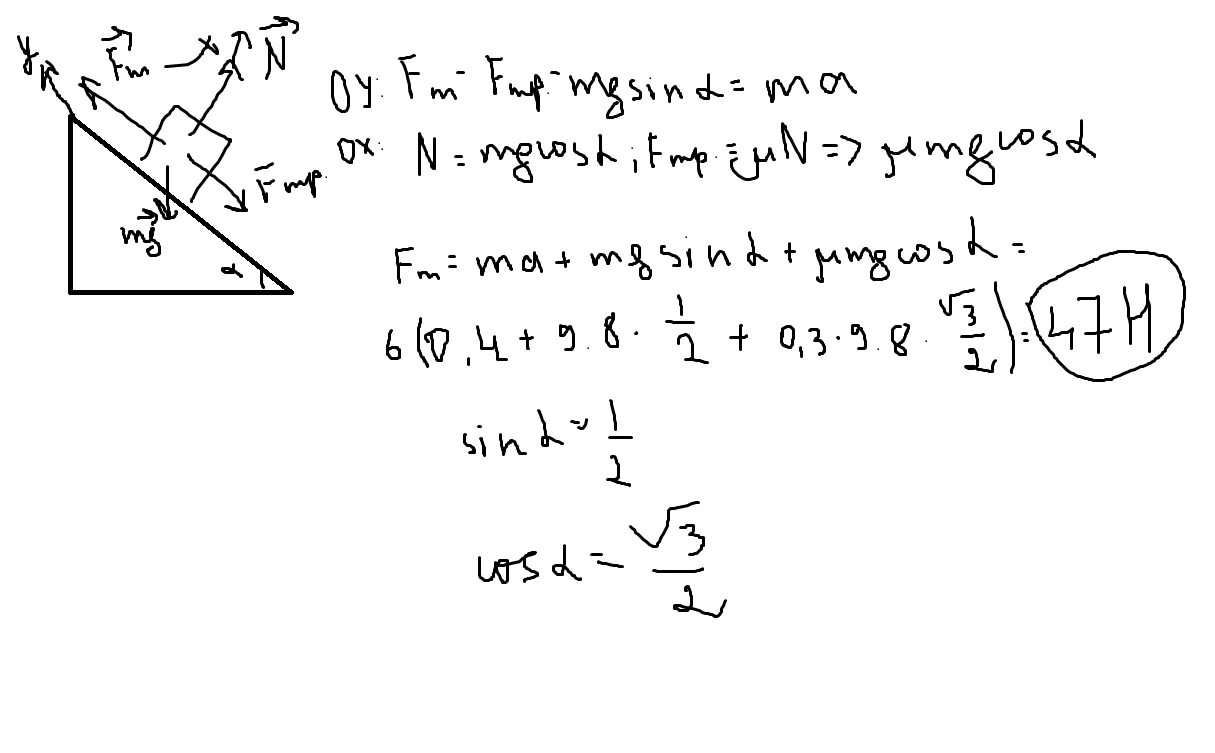 y F⃗m x N⃗
F⃗mp.
mg⃗
α
Oy: Fm - Fmp. - mg sin α = ma
Ox: N = mg cos α ; Fmp. = μN => μmg cos α
Fm = ma + mg sin α + μmg cos α =
6 (0,4 + 9.8 · 1/2 + 0,3 · 9.8 · √3/2) = 47 H
sin α = 1/2
cos α = √3/2